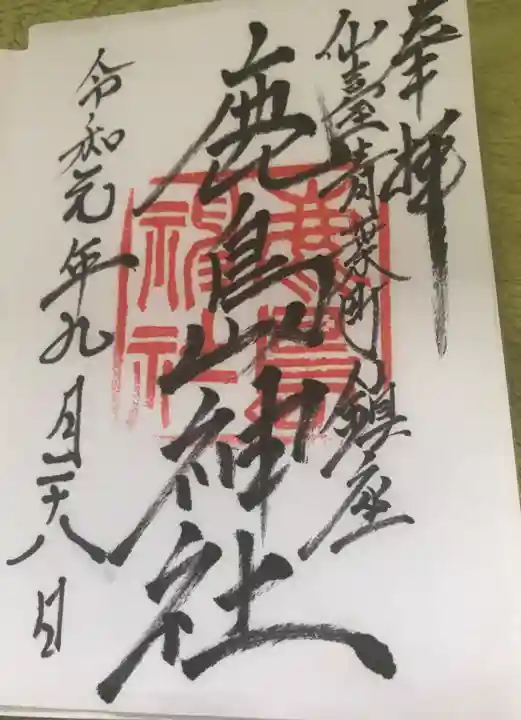 奉拝
仙台青葉町鎮座
鹿島神社
令和元年九月二十八日
鹿島
神社